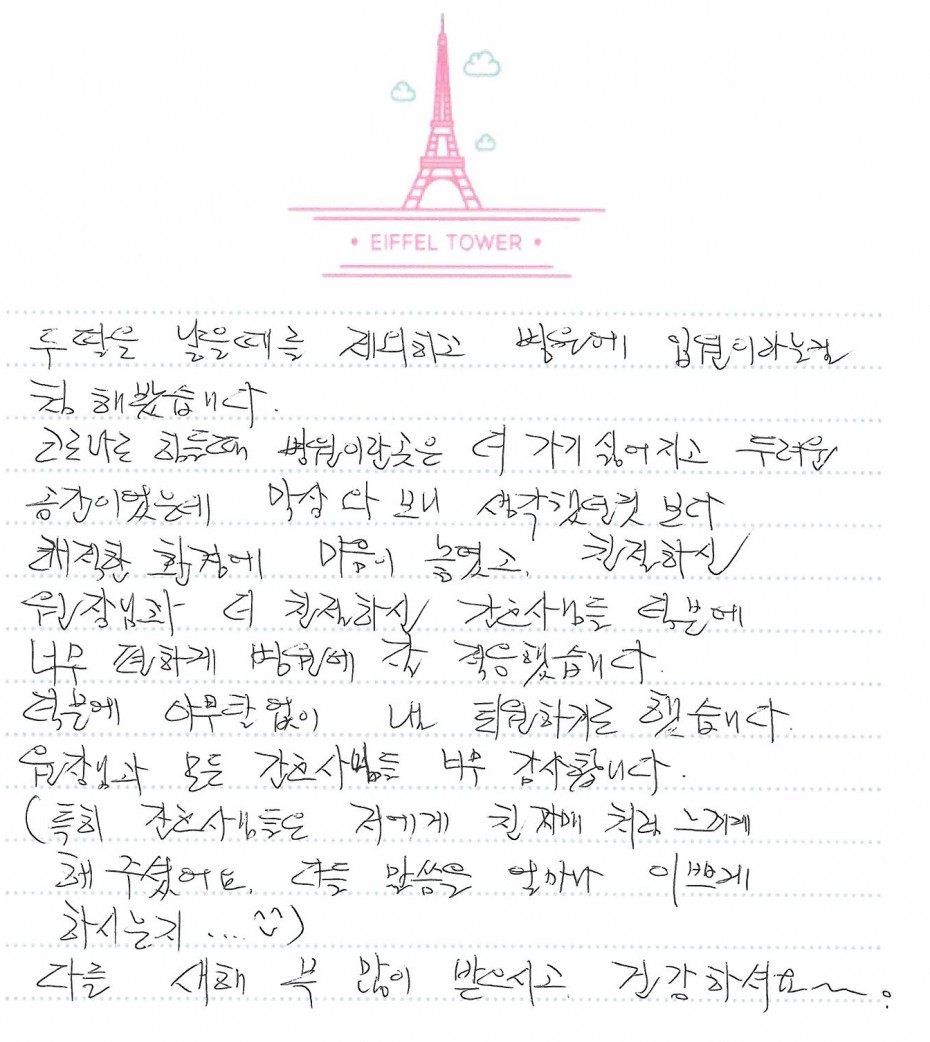 • EIFFEL TOWER •
두 딸을 낳을때를 제외하고 병원에 입원이라는걸
첨 해봤습니다.
코로나로 힘들때 병원이란곳은 더 가기 싫어지고 두려운
공간이었는데 막상 와 보니 생각했던것 보다
쾌적한 환경에 마음이 놓였고, 친절하신
원장님과 더 친절하신 간호사님들 덕분에
너무 편하게 병원에 잘 적응했습니다.
덕분에 아무탈없이 내일 퇴원하기로 했습니다.
원장님과 모든 간호사님들 너무 감사합니다.
(특히 간호사님들은 저에게 친 자매 처럼 느끼게
해 주셨어요. 다들 말씀을 얼마나 이쁘게
하시는지 .... ^^)
다들 새해 복 많이 받으시고 건강하셔요~.